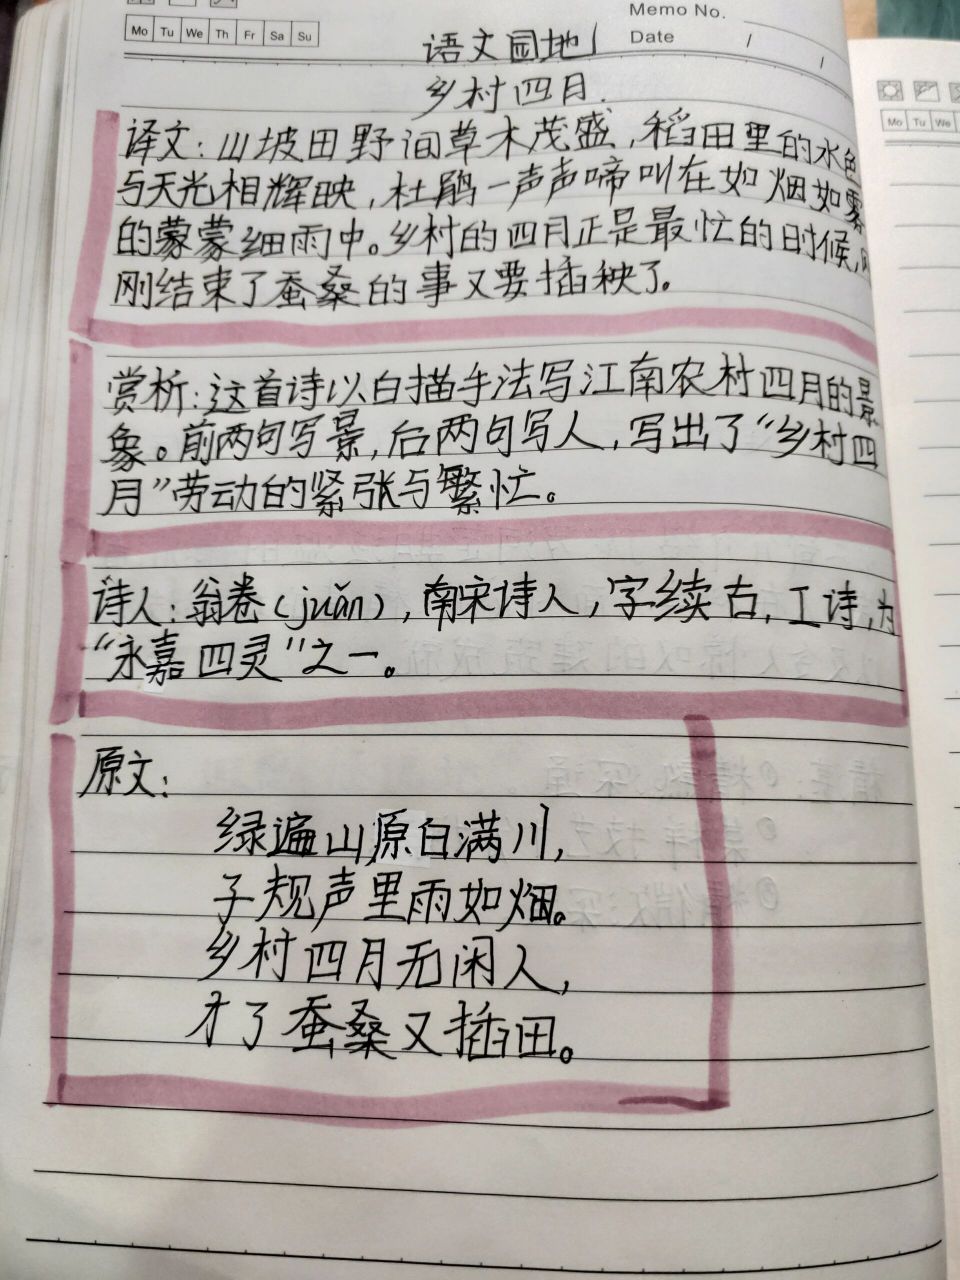 Memo No.
Mo Tu We Th Fr Sa Su
Date / /
语文园地1
乡村四月
译文：山坡田野间草木茂盛，稻田里的水色
与天光相辉映，杜鹃一声声啼叫在如烟如雾
的蒙蒙细雨中。乡村的四月正是最忙的时候，
刚结束了蚕桑的事又要插秧了。
赏析：这首诗以白描手法写江南农村四月的景
象。前两句写景，后两句写人，写出了“乡村四
月”劳动的紧张与繁忙。
诗人：翁卷（juǎn），南宋诗人，字续古，工诗，为
“永嘉四灵”之一。
原文：
绿遍山原白满川，
子规声里雨如烟。
乡村四月无闲人，
才了蚕桑又插田。
Mo Tu We